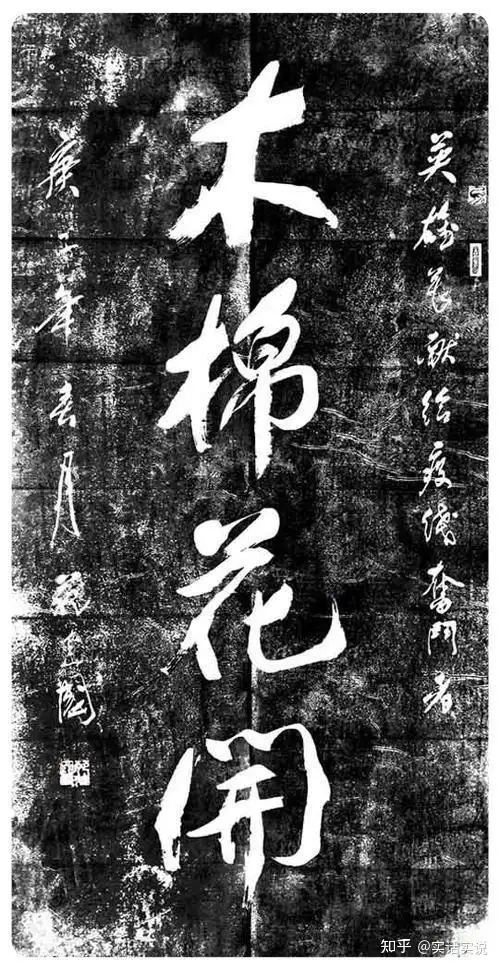 英雄花献给疫綫奮鬥者
木棉花開
庚子年春月
知乎 @实话实说